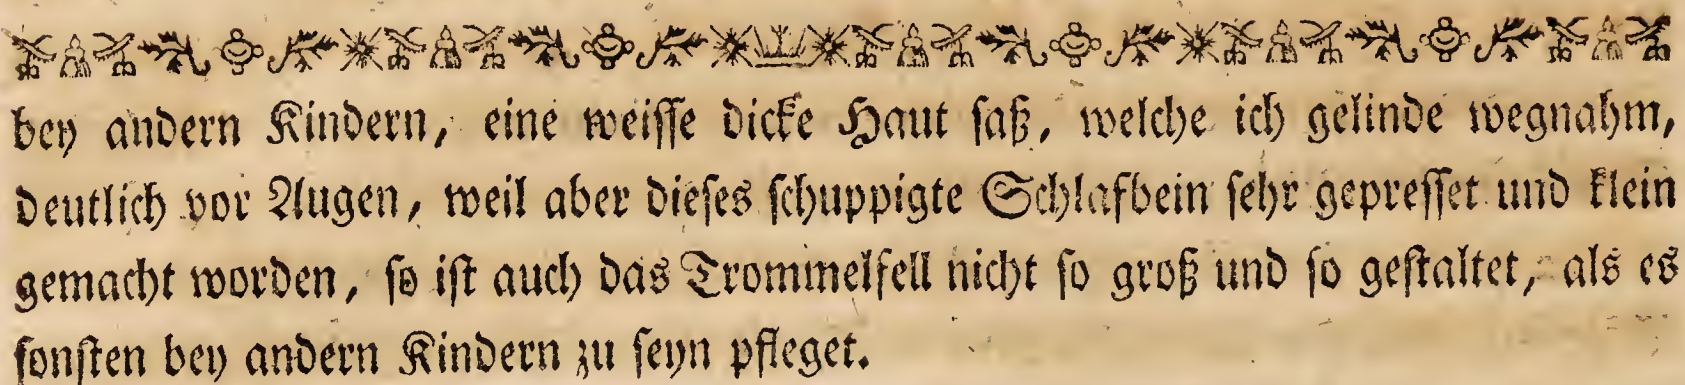 bey andern Kindern, eine weiſſe dicke Haut ſaß, welche ich gelinde wegnahm,
deutlich vor Augen, weil aber dieſes ſchuppigte Schlafbein ſehr gepreſſet und klein
gemacht worden, ſo iſt auch das Trommelfell nicht ſo groß und ſo geſtaltet, als es
ſonſten bey andern Kindern zu ſeyn pfleget.